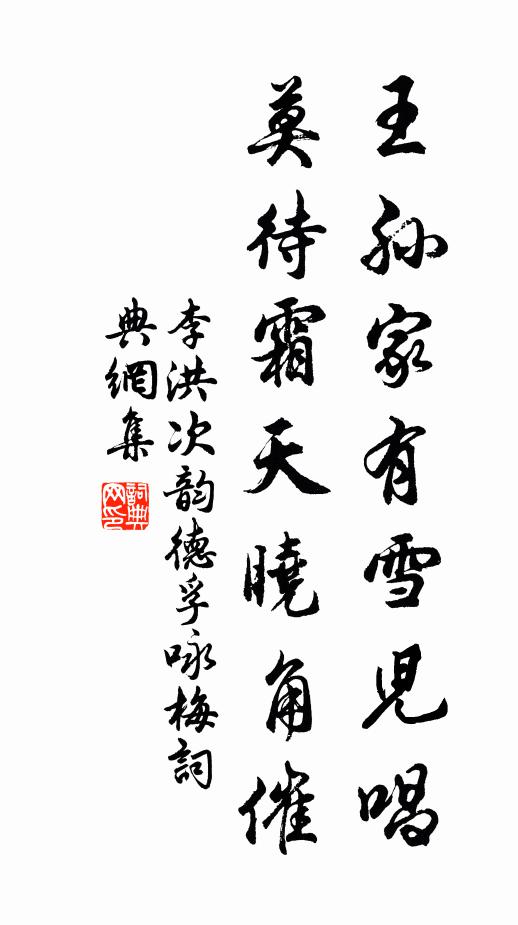 王孫家有雪児唱
莫待霜天曉角催
李洪次韵德孚咏梅詞
典網集
詞典网印